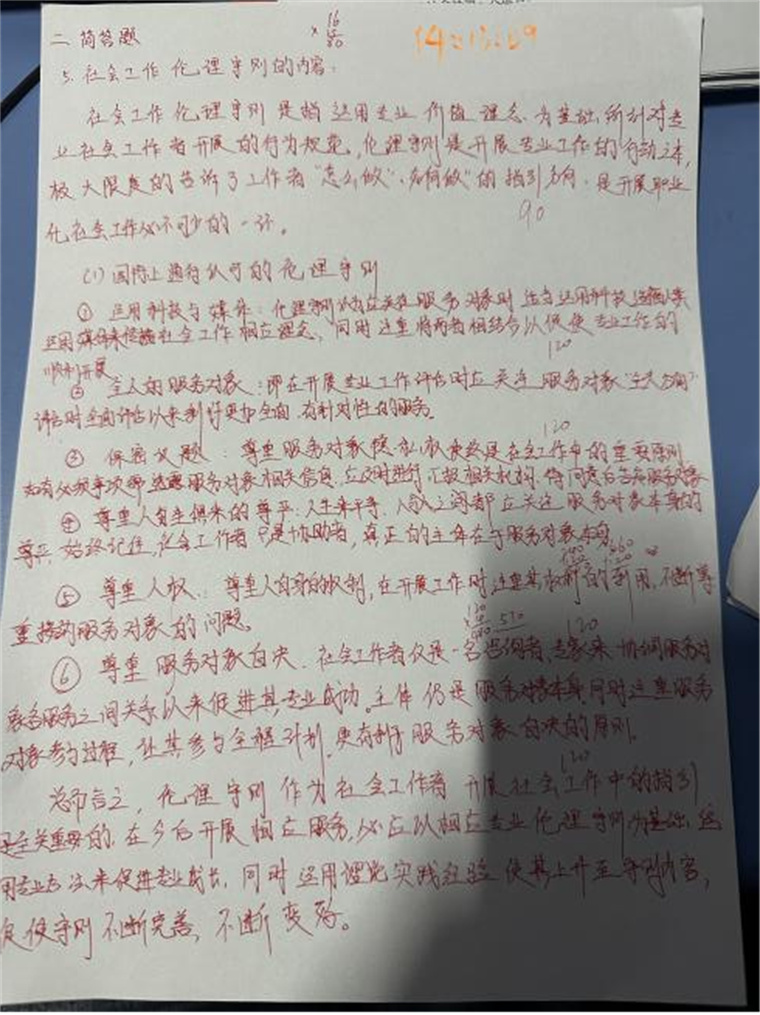 二 简答题
×16
5
80
14:13:29
5. 社会工作伦理守则的内容:
社会工作伦理守则是指运用专业价值理念、为基础,所针对专
业社会工作者开展的行为规范,伦理守则是开展专业工作的行动之本,
极大限度的告诉了工作者“怎么做”、“如何做”的指引方向,是开展职业
化社会工作必不可少的一环。
90
(1) 国际上通行认可的伦理守则
① 运用科技与媒体:伦理守则认为应关注服务对象时 适当运用科技
运用媒体来传播社会工作相应理念,同时注重将两者相结合以促使专业工作的
顺利开展
120
② 全人的服务对象:即在开展专业工作评估时应关注服务对象“全人方面”
评估时全面评估以来制订更加全面、有针对性的服务。
120
③ 保密议题:尊重服务对象隐私权贯终是社会工作中的重要原则
如有必须事项即透露服务对象相关信息,应及时进行汇报相关机构,待同意后告知服务对象
④ 尊重人与生俱来的尊严:人生来平等,人与人之间都应关注服务对象本身的
尊严,始终记住,社会工作者只是协助者,真正的主体在于服务对象本身。
⑤ 尊重人权:尊重人自身的权利,在开展工作时注重其权利的利用,不断尊
重接纳服务对象的问题。
120
⑥ 尊重服务对象自决:社会工作者仅是一名咨询者、专家来协调服务对
象与服务之间关系以来促进其专业成功。主体仍是服务对象本身,同时注重服务
对象参与过程,让其参与全程计划,更有利于服务对象自决的原则。
120
总而言之,伦理守则作为社会工作者开展社会工作中的指引
是至关重要的,在今后开展相应服务,必应以相应专业伦理守则为基础,运
用专业方法来促进专业成长,同时运用理论实践经验使其上升至守则内容,
促使守则不断完善,不断变好。